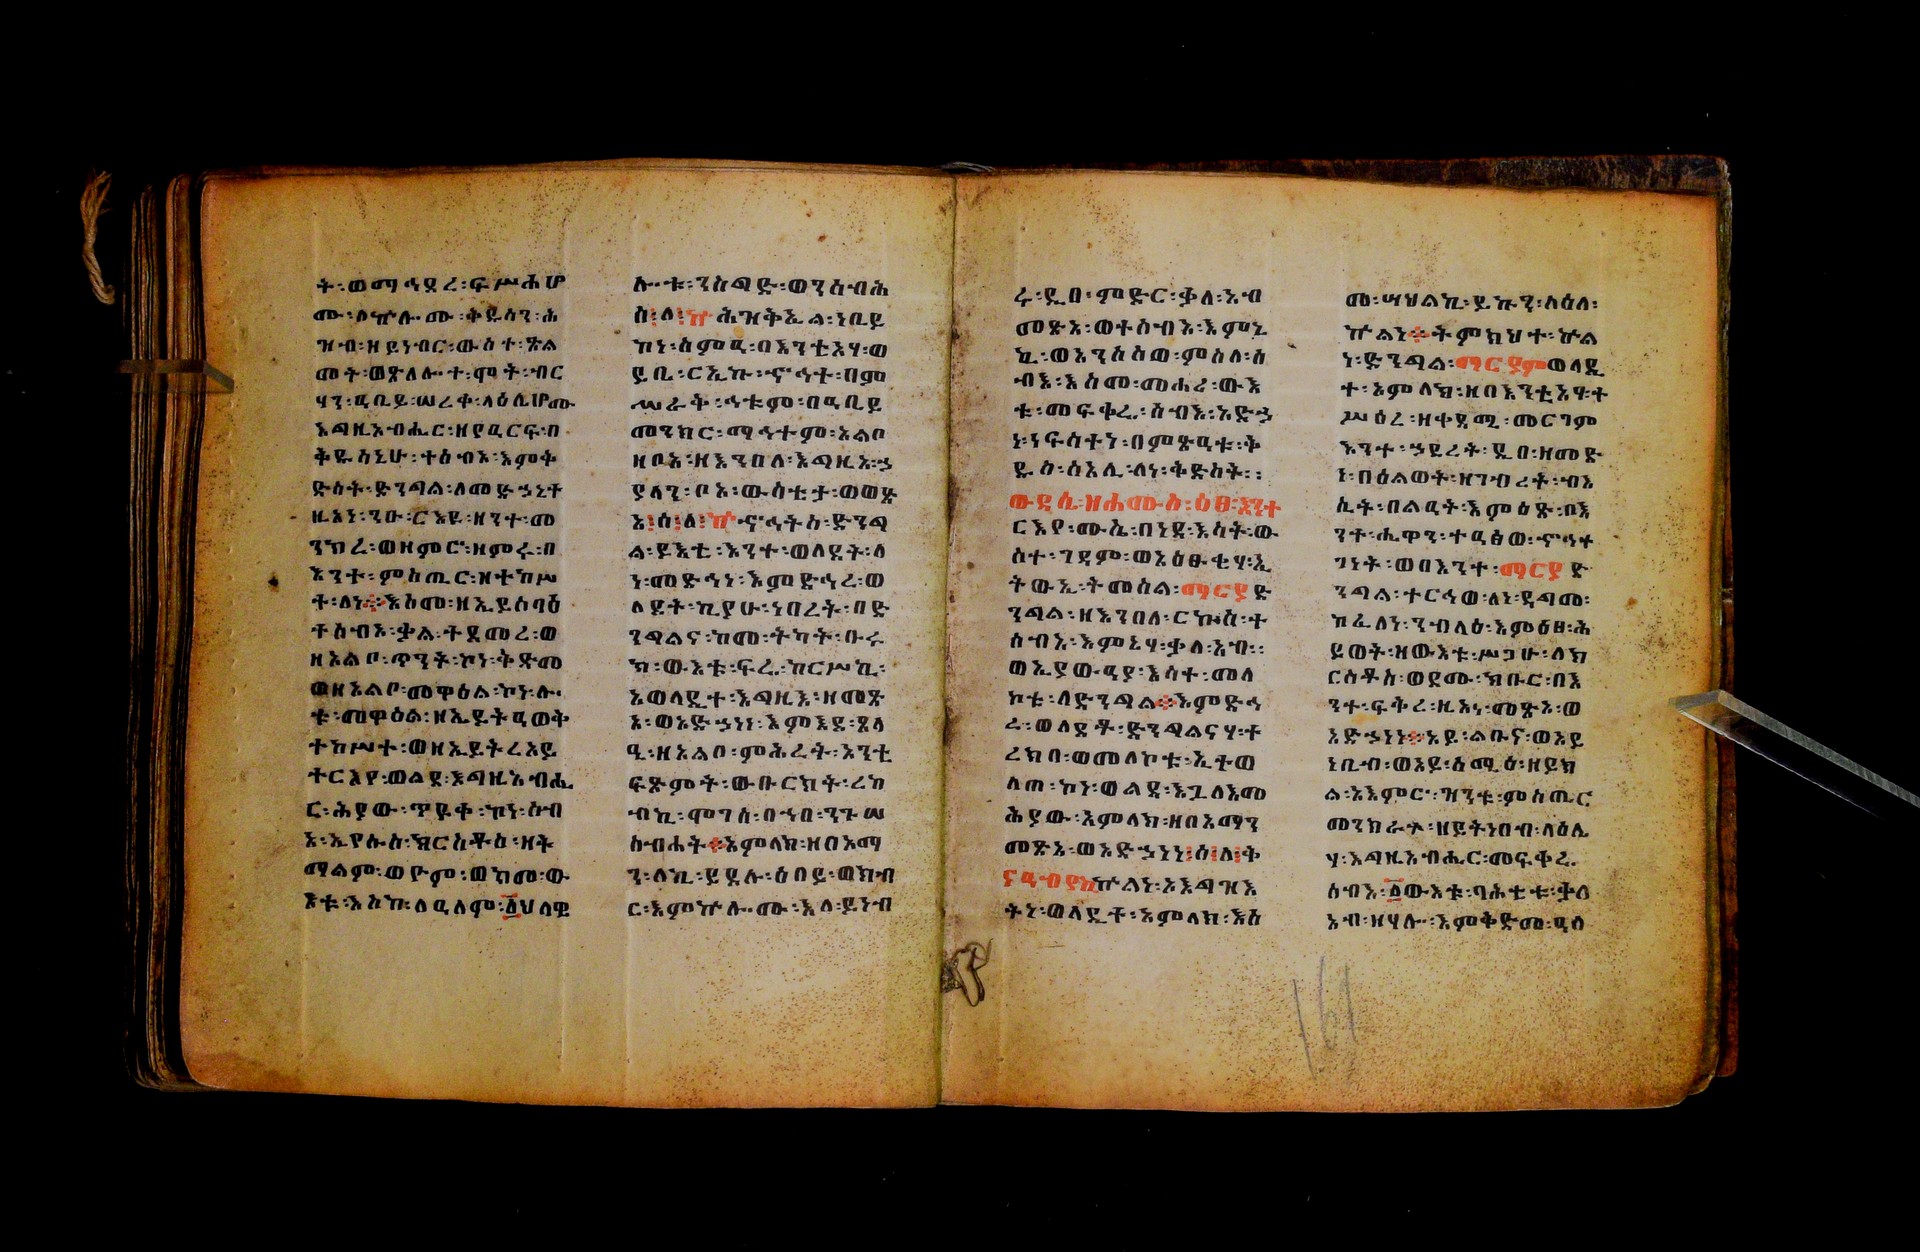 ት፡ወማኅደረ፡ፍሥሐሆ
ሙ፡ለኵሉ፡ሙ፡ቅዱሳን፡ሕ
ዝብ፡ዘይነብር፡ውስተ፡ጽል
መት፡ወጽላሎተ፡ሞት፡ብር
ሃን፡ዓቢይ፡ሠረቀ፡ላዕሌሆሙ
እግዚአብሔር፡ዘያዐርፍ፡በ
ቅዱሳኒሁ፡ተሰብአ፡እምቅ
ድስት፡ድንግል፡ለመድኃኒት
ዚአነ፡ንዑ፡ርእዩ፡ዘንተ፡መ
ንክረ፡ወዘምሩ፡ዘምሩ፡በ
እንተ፡ምስጢር፡ዘተከሥ
ተ፡ለነ፡እስመ፡ዘኢይሰባእ
ተሰብአ፡ቃል፡ተደመረ፡ወ
ዘአልቦ፡ጥንት፡ኮነ፡ቅድመ
ወዘአልቦ፡መዋዕል፡ኮነ፡ሎ
ቱ፡መዋዕል፡ዘኢይትዐወቅ
ተከሥተ፡ወዘኢይትረአይ
ተርእየ፡ወልደ፡እግዚአብሔ
ር፡ሕያው፡ጥዩቀ፡ኮነ፡ሰብ
አ፡ኢየሱስ፡ክርስቶስ፡ዘት
ማልም፡ወዮም፡ወክመ፡ው
እቱ፡እስከ፡ለዓለም፡፩ህላዌ
ሎቱ፡ንስግድ፡ወንሰብሕ
ስ፡ለ፡ኵ ሕዝቅኤል፡ነቢይ
ኮነ፡ስምዓ፡በእንቲአሃ፡ወ
ይቤ፡ርኢኩ፡ኆኅተ፡በም
ሥራቅ፡ኅቱም፡በዓቢይ
መንክር፡ማኅተም፡አልቦ
ዘቦአ፡ዘእንበለ፡እግዚአ፡ኃ
ያላን፡ቦአ፡ውስቴታ፡ወወፅ
አ፡ስ፡ለ፡ኵ ኆኅትሰ፡ድንግ
ል፡ይእቲ፡እንተ፡ወለደት፡ለ
ነ፡መድኅነ፡እምድኅረ፡ወ
ለደት፡ኪያሁ፡ነበረት፡በድ
ንግልና፡ከመ፡ትካት፡ቡሩ
ክ፡ውእቱ፡ፍሬ፡ከርሥኪ፡
አወላዲተ፡እግዚእ፡ዘመጽ
አ፡ወአድኃነነ፡እምእደ፡ጸላ
ዒ፡ዘአልቦ፡ምሕረት፡አንቲ
ፍጽምት፡ወቡርክት፡ረከ
ብኪ፡ሞገሰ፡በኀበ፡ንጉሠ
ስብሐት፡አምላክ፡ዘበአማ
ን፡ለኪ፡ይደሉ፡ዕበይ፡ወክብ
ር፡እምኵሉ፡ሙ፡እለ፡ይነብ
ሩ፡ዲበ፡ምድር፡ቃለ፡አብ
መጽአ፡ወተሰብአ፡እምኔ
ኪ፡ወአንሶሰወ፡ምስለ፡ሰ
ብእ፡እስመ፡መሐሪ፡ውእ
ቱ፡መፍቀሬ፡ሰብእ፡አድኃ
ነ፡ነፍሳተነ፡በምጽዓቱ፡ቅ
ዱስ፡ሰአሊ፡ለነ፡ቅድስት፡፡
ውዳሴ፡ዘሐሙስ፡ዕፀ፡እንተ
ርእየ፡ሙሴ፡በነደ፡እሳት፡ው
ስተ፡ገዳም፡ወአዕፁቂሃ፡ኢ
ትውኢ፡ትመስል፡ማርያ ድ
ንግል፡ዘእንበለ፡ርኵስ፡ተ
ሰብአ፡እምኔሃ፡ቃለ፡አብ፡፡
ወኢያውዓያ፡እሳተ፡መለ
ኮቱ፡ለድንግል፡እምድኅ
ረ፡ወለደቶ፡ድንግልናሃ፡ተ
ረክበ፡ወመለኮቱ፡ኢተወ
ለጠ፡ኮነ፡ወልደ፡እጓለእመ
ሕያው፡አምላክ፡ዘበአማን
መጽአ፡ወአድኃነነ፡ስ፡ለ፡ቅ
ናዓብየኪ ኵልነ፡እእግዝእ
ትነ፡ወላዲተ፡አምላክ፡እስ
መ፡ሣህልኪ፡ይኩን፡ላዕለ፡
ኵልነ፡ትምክህተ፡ኵል
ነ፡ድንግል፡ማርያም ወላዲ
ተ፡አምላክ፡ዘበእንቲአሃ፡ተ
ሥዕረ፡ዘቀዳሚ፡መርገም
እንተ፡ኃደረት፡ዲበ፡ዘመድ
ነ፡በዕልወት፡ዘገብረት፡ብእ
ሲት፡በልዓት፡እምዕጽ፡በእ
ንተ፡ሔዋን፡ተዓፅወ፡ኆኅተ
ገነት፡ወበእንተ፡ማርያ ድ
ንግል፡ተርኅወ፡ለነ፡ዳግመ፡
ከፈለነ፡ንብላዕ፡እምዕፀ፡ሕ
ይወት፡ዘውእቱ፡ሥጋሁ፡ለክ
ርስቶስ፡ወደሙ፡ክቡር፡በእ
ንተ፡ፍቅረ፡ዚአነ፡መጽአ፡ወ
አድኃነነ፡አይ፡ልቡና፡ወአይ
ነቢብ፡ወአይ፡ሰሚዕ፡ዘይክ
ል፡አእምሮ፡ዝንቱ፡ምስጢር
መንክራት፡ዘይትነበብ፡ላዕሌ
ሃ፡እግዚአብሔር፡መፍቀሬ
ሰብእ፡፩ውእቱ፡ባሕቲቱ፡ቃለ
አብ፡ዘሃሎ፡እምቅድመ፡ዓለ
161